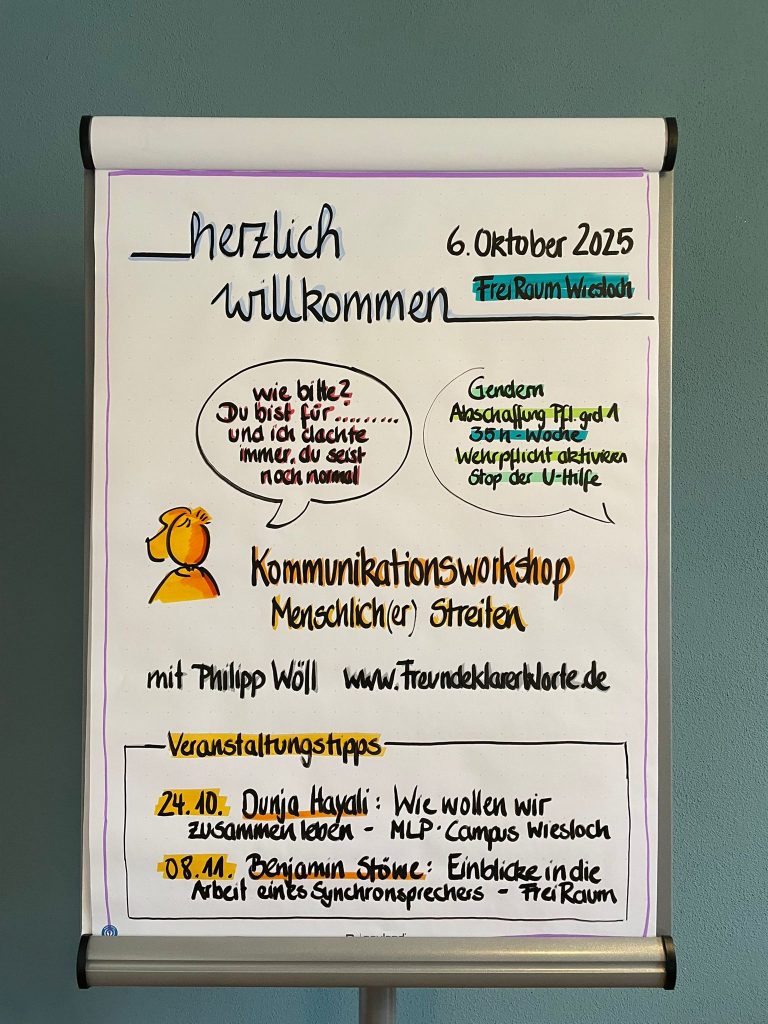 herzlich
willkommen
6. Oktober 2025
FreiRaum Wiesloch
wie bitte?
Du bist für.........
und ich dachte
immer, du seist
noch normal
Gendern
Abschaffung Pfl.grd 1
35h-Woche
Wehrpflicht aktivieren
Stop der U-Hilfe
Kommunikationsworkshop
Menschlich(er) Streiten
mit Philipp Wöll www.FreundeklarerWorte.de
Veranstaltungstipps
24.10. Dunja Hayali: Wie wollen wir
zusammen leben - MLP-Campus Wiesloch
08.11. Benjamin Stöwe: Einblicke in die
Arbeit eines Synchronsprechers - FreiRaum